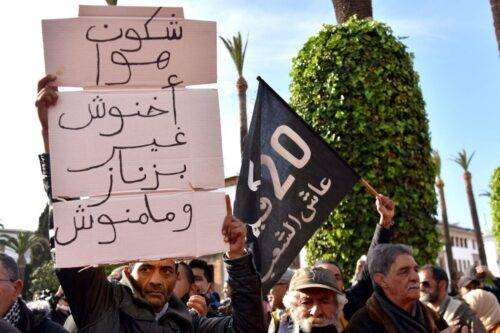 شكون
هوا
أخنوش
غير
بزناز
ومامنوش
20
عاش الشعب